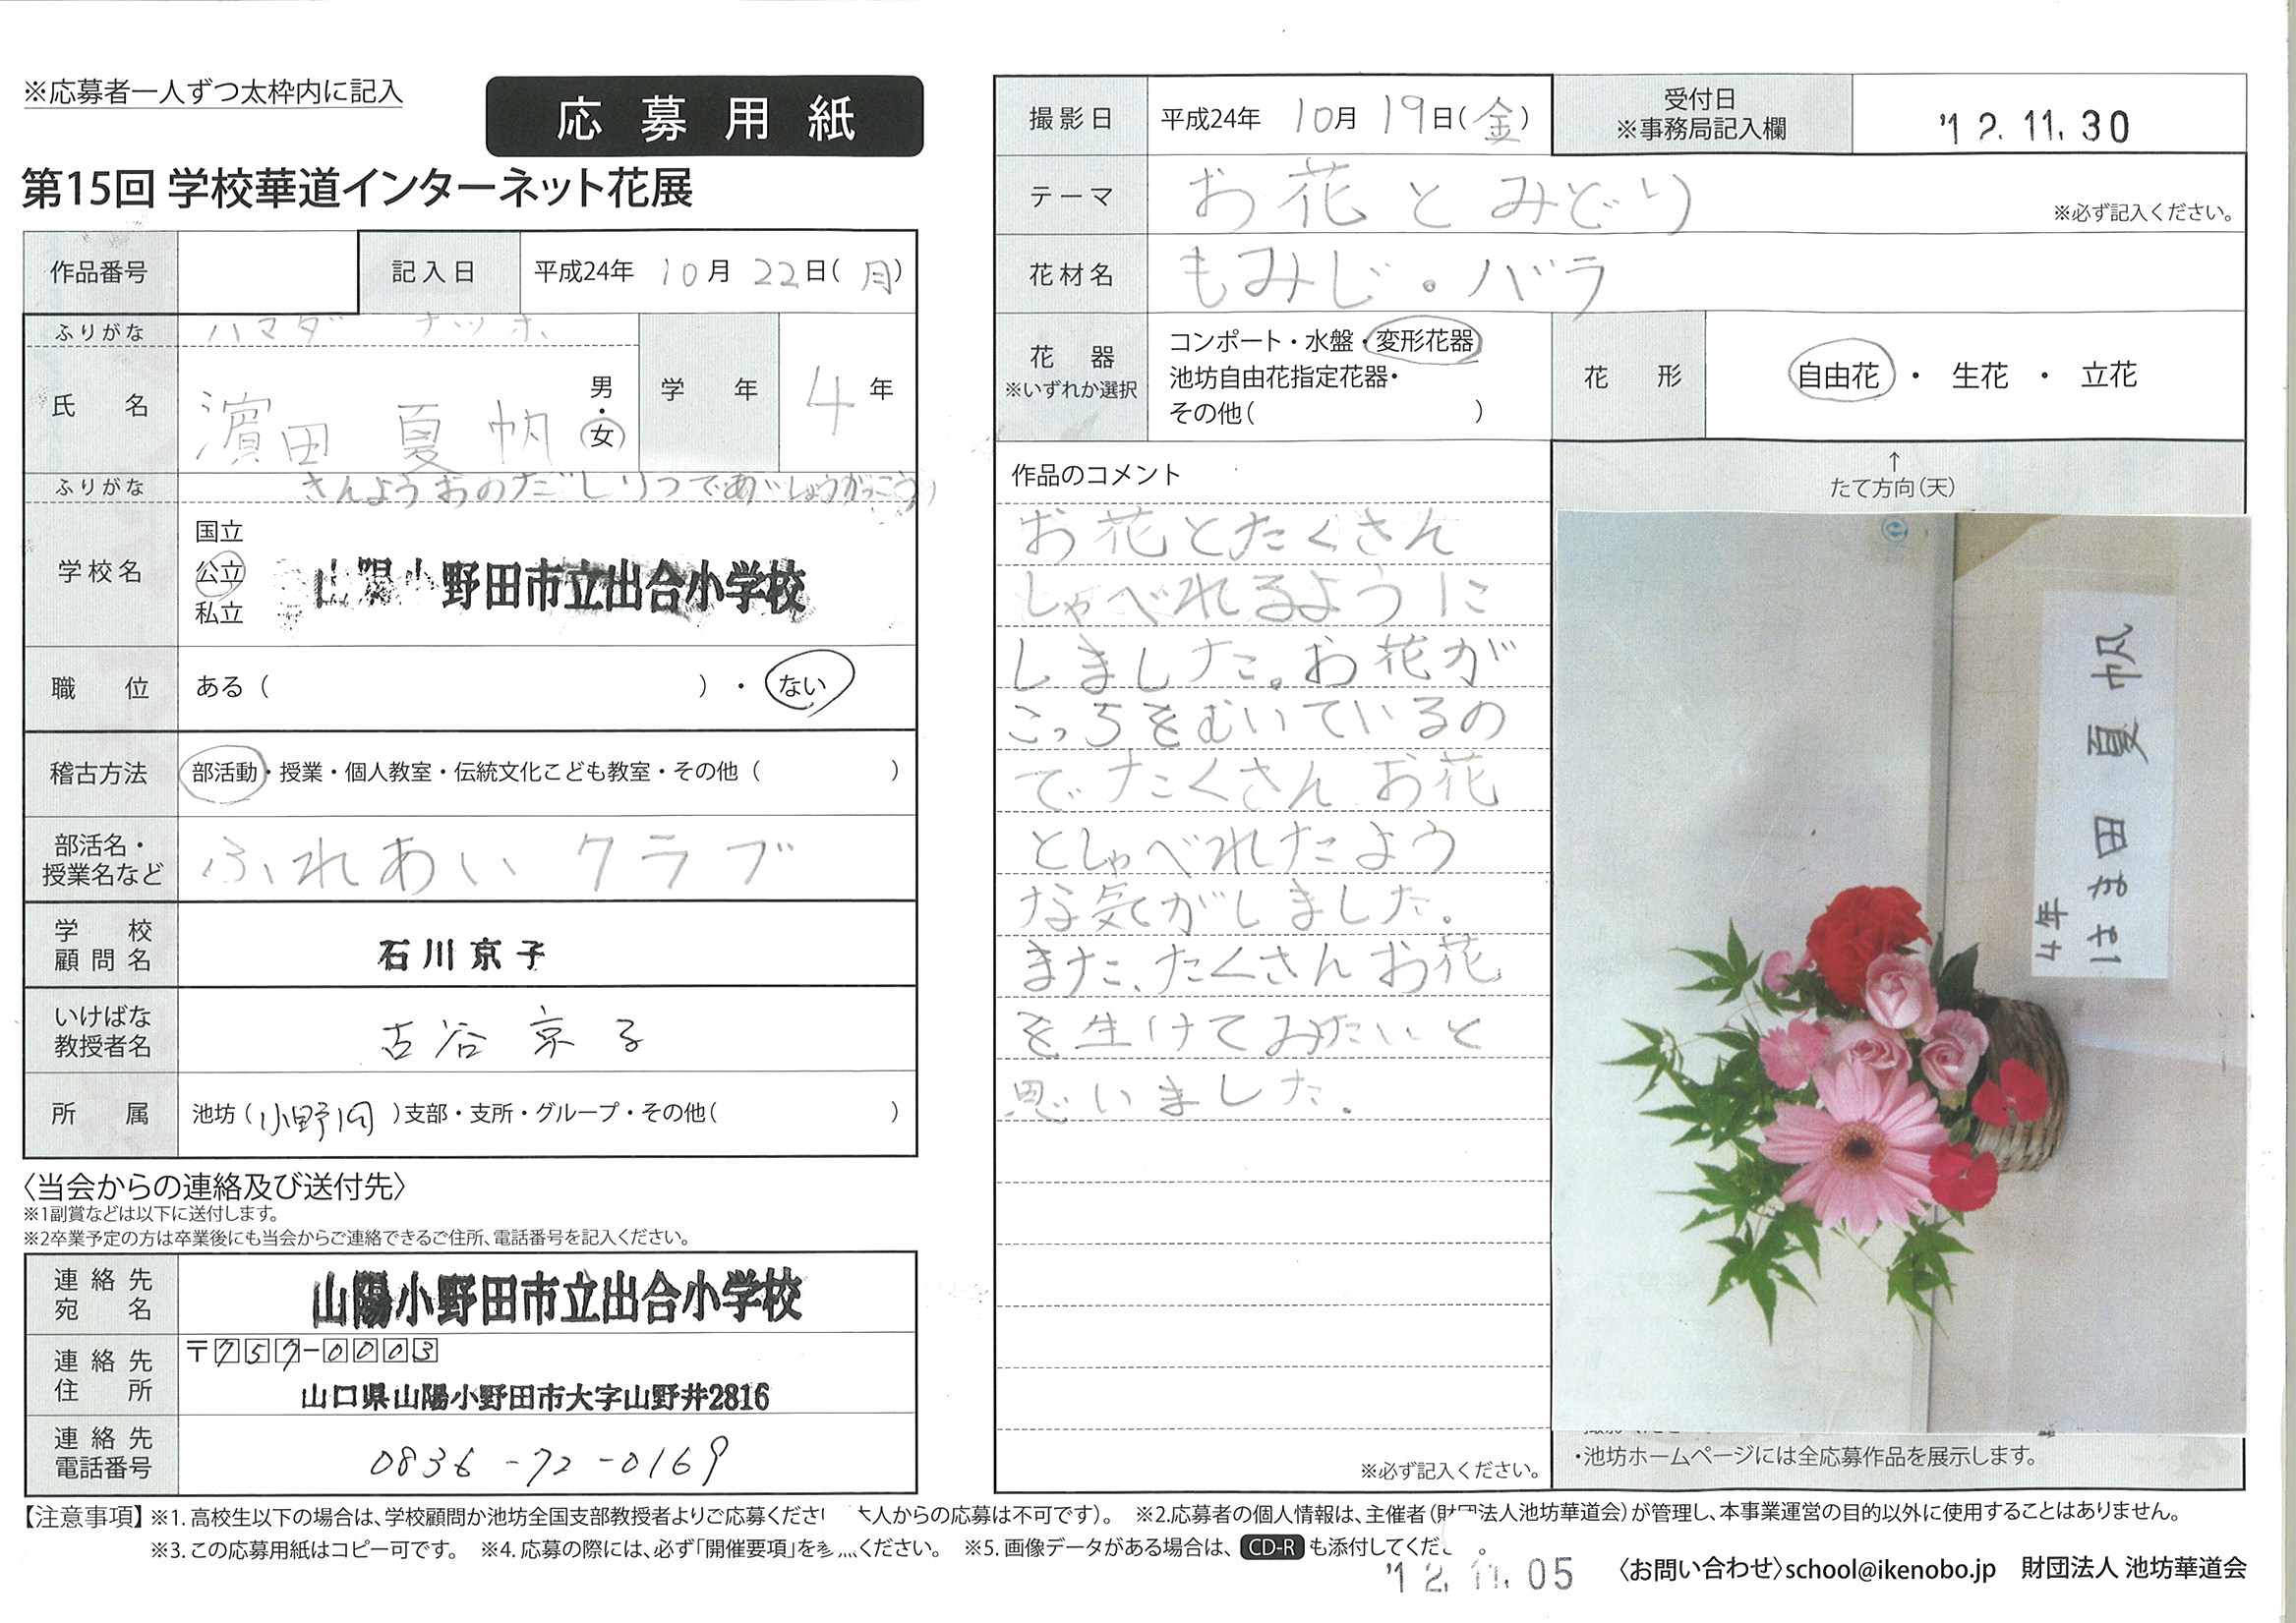 ※応募者一人ずつ太枠内に記入
応募用紙
第15回 学校華道インターネット花展
作品番号
記入日 平成24年 10月 22日(月)
ふりがな ハマダ ナツホ
氏名 濵田 夏帆 男・女
学年 4年
ふりがな さんようおのだしりつであいしょうがっこう
学校名 国立 公立 私立 山陽小野田市立出合小学校
職位 ある( )・ない
稽古方法 部活動・授業・個人教室・伝統文化こども教室・その他( )
部活名・授業名など ふれあいクラブ
学校顧問名 石川京子
いけばな教授者名 古谷京子
所属 池坊(小野田)支部・支所・グループ・その他( )
〈当会からの連絡及び送付先〉
※1副賞などは以下に送付します。
※2卒業予定の方は卒業後にも当会からご連絡できるご住所、電話番号を記入ください。
連絡先宛名 山陽小野田市立出合小学校
連絡先住所 〒757-0003
山口県山陽小野田市大字山野井2816
連絡先電話番号 0836-72-0169
撮影日 平成24年 10月 19日(金)
受付日
※事務局記入欄
'12.11.30
テーマ お花とみどり
※必ず記入ください。
花材名 もみじ・バラ
花器
※いずれか選択
コンポート・水盤・変形花器
池坊自由花指定花器・
その他( )
花形 自由花・生花・立花
作品のコメント
お花とたくさん
しゃべれるように
しました。お花が
こっちをむいているの
で、たくさんお花
としゃべれたよう
な気がしました。
また、たくさんお花
を生けてみたいと
思いました。
※必ず記入ください。
↑
たて方向(天)
4年
はま田 夏帆
・池坊ホームページには全応募作品を展示します。
【注意事項】※1. 高校生以下の場合は、学校顧問か池坊全国支部教授者よりご応募くださ 人からの応募は不可です)。 ※2.応募者の個人情報は、主催者(財団法人池坊華道会)が管理し、本事業運営の目的以外に使用することはありません。
※3. この応募用紙はコピー可です。 ※4. 応募の際には、必ず「開催要項」を ください。 ※5. 画像データがある場合は、CD-Rも添付してくだ 。
'12.11.05
〈お問い合わせ〉school@ikenobo.jp 財団法人 池坊華道会